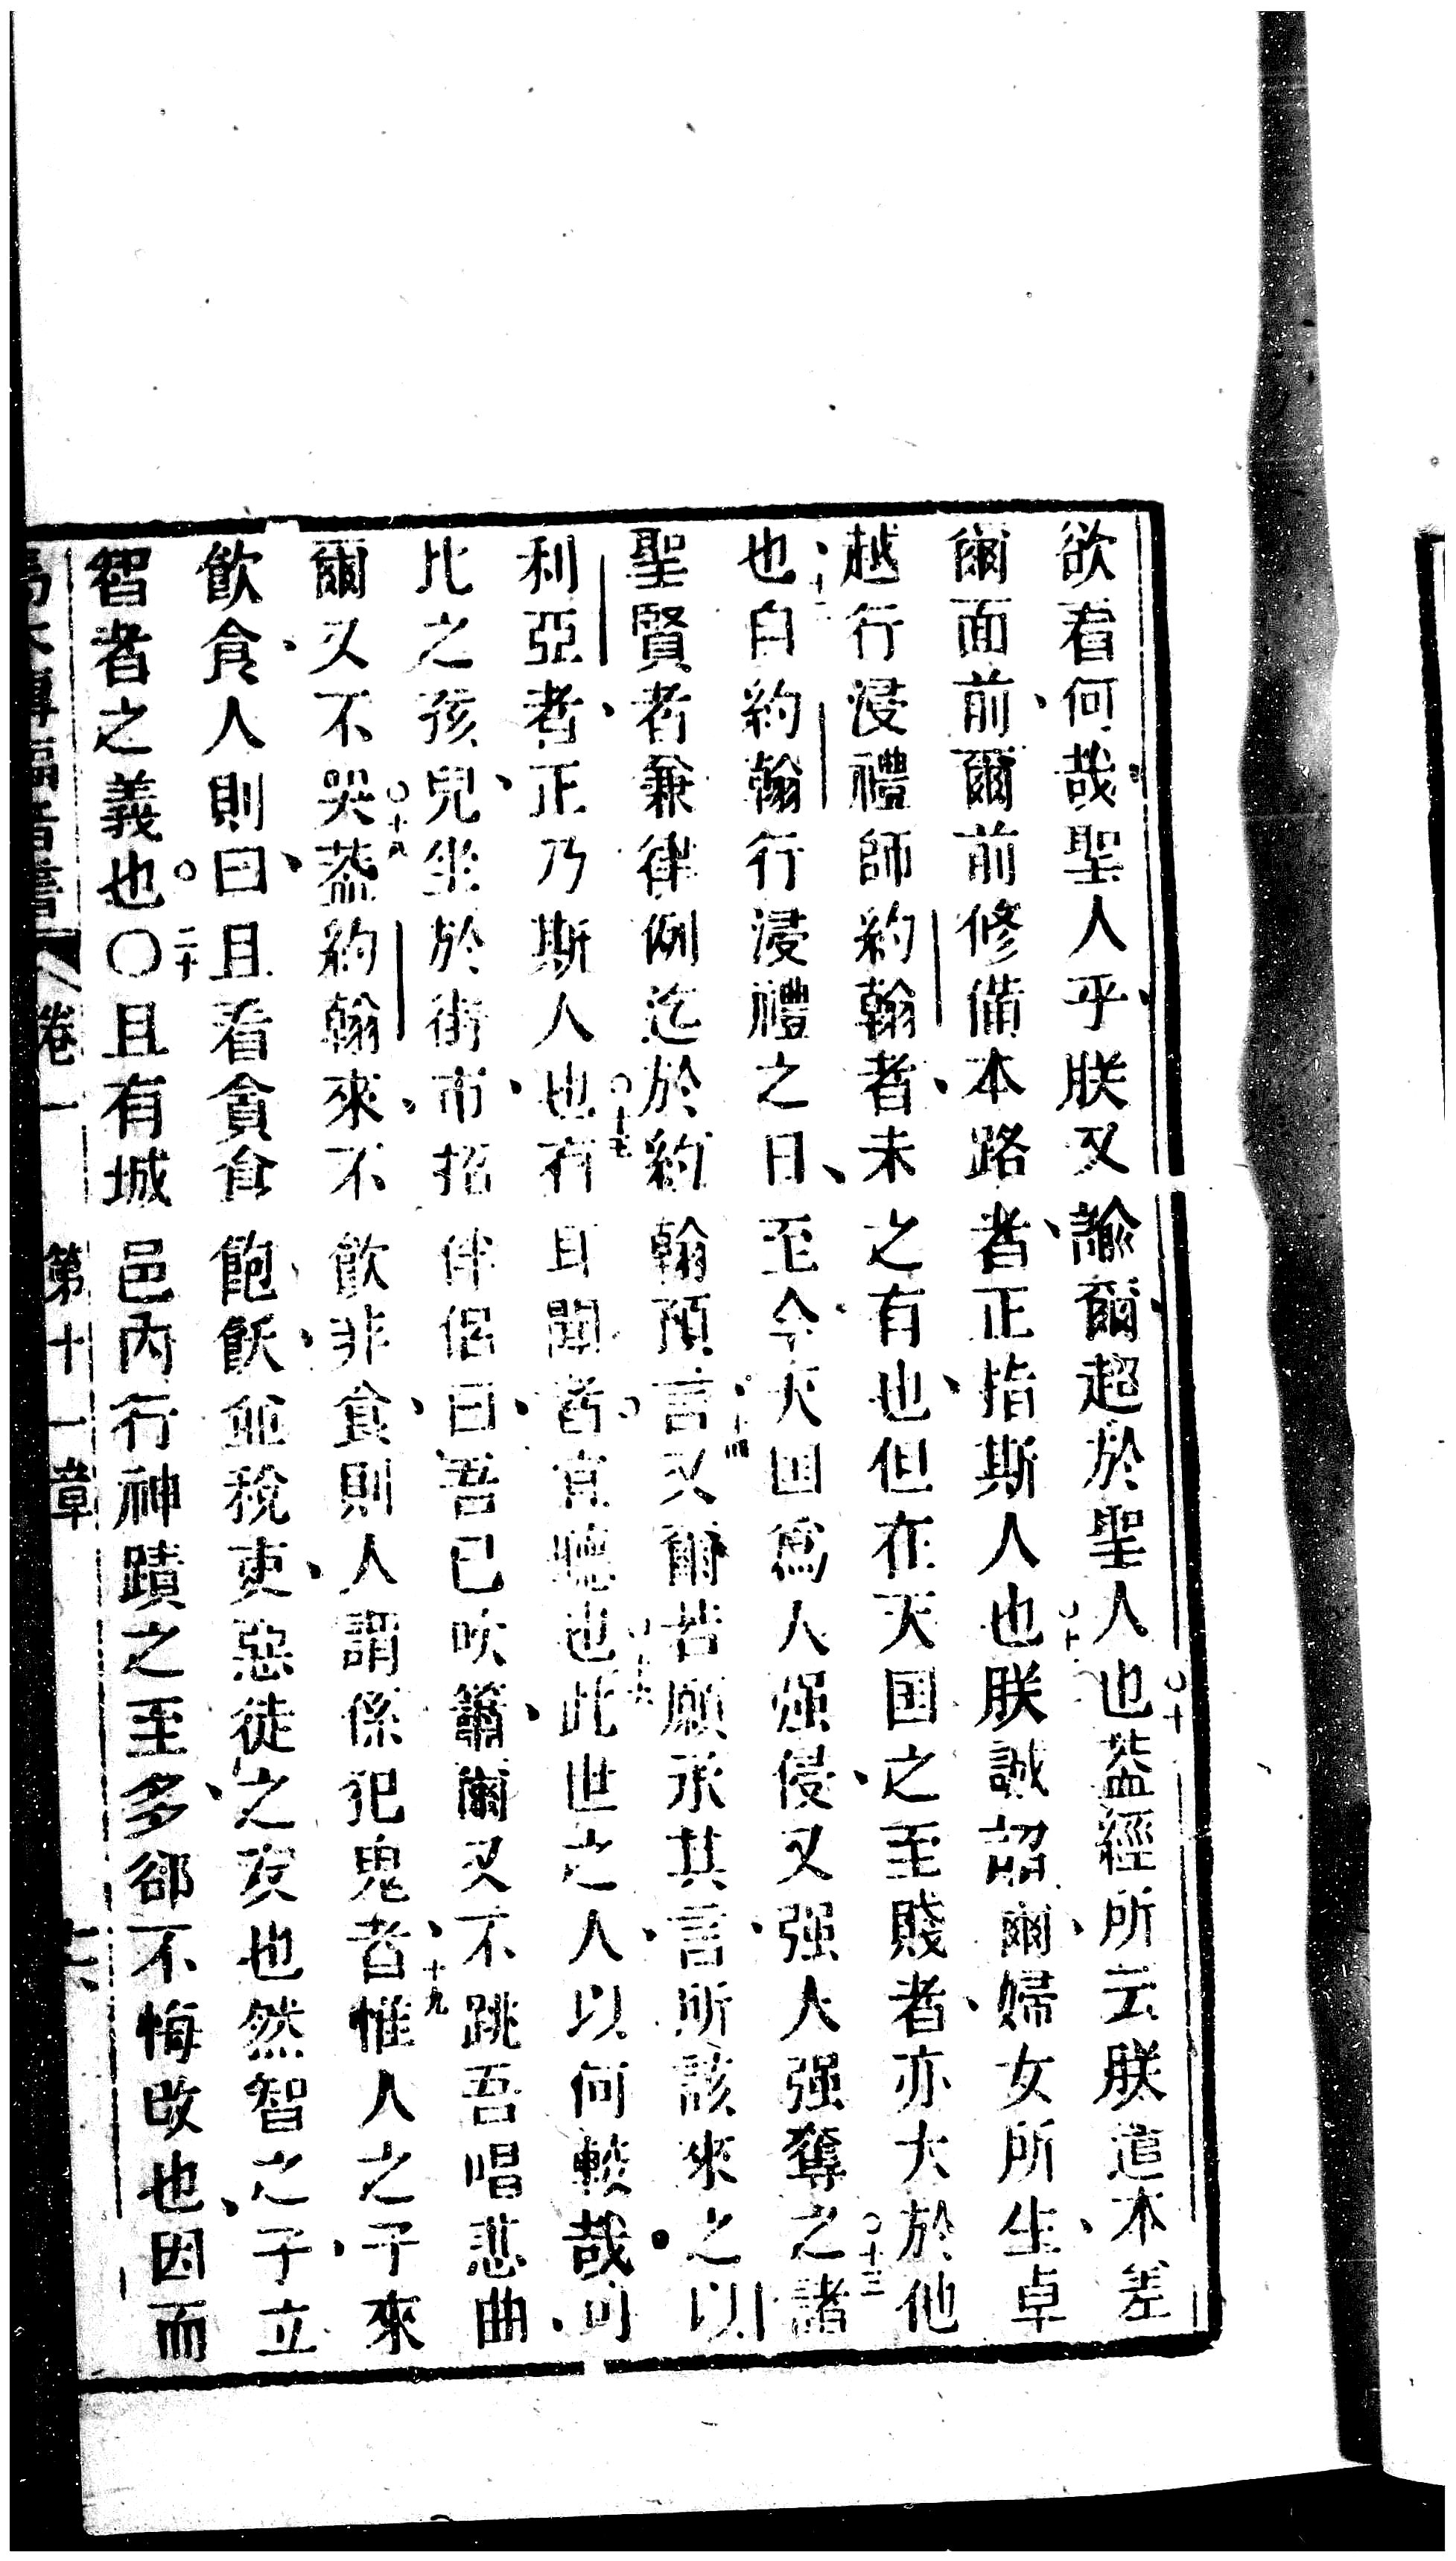 欲看何哉聖人乎朕又諭爾超於聖人也○十葢經所云朕遣本差
爾面前爾前修備本路者正指斯人也朕誠詔爾婦女所生卓
越行浸禮師約翰者未之有也但在天国之至賤者亦大於他
也自約翰行浸禮之日至今天国爲人强侵又强人强奪之○十三諸
聖賢者兼律例迄於約翰預言十四又爾若願承其言所該來之以
利亞者正乃斯人也○十五有耳聞者宜聽也此世之人以何較哉可
比之孩兒坐於街市招伴侶曰吾已吹簫爾又不跳吾唱悲曲
爾又不哭○十八葢約翰來不飲非食則人謂係犯鬼者十九惟人之子來
飲食人則曰且看貪食飽飫並稅吏惡徒之友也然智之子立
智者之義也○二十〇且有城邑內行神蹟之至多郤不悔改也因而
馬太傳福音書 卷一 第十一章